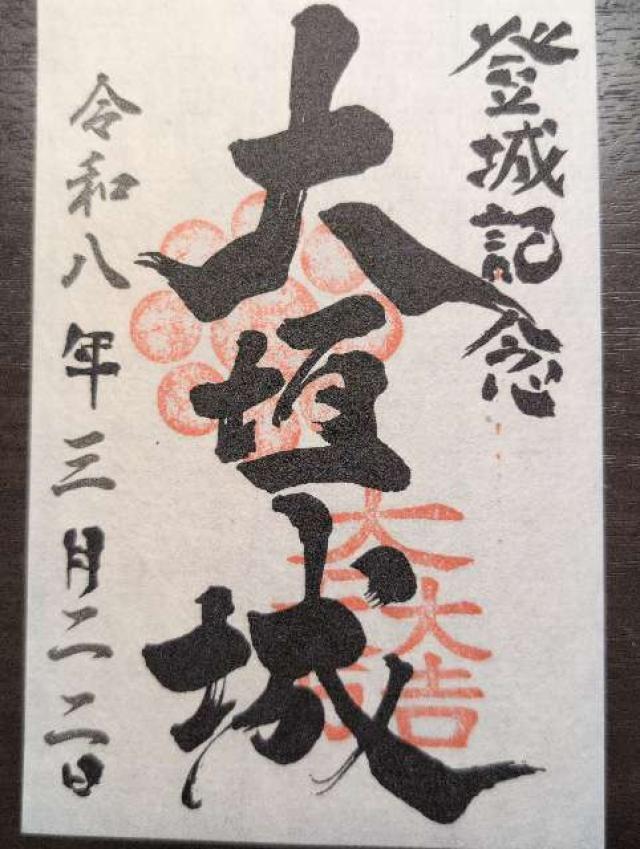 登城記念
大垣城
令和八年三月二二日
大一大万大吉